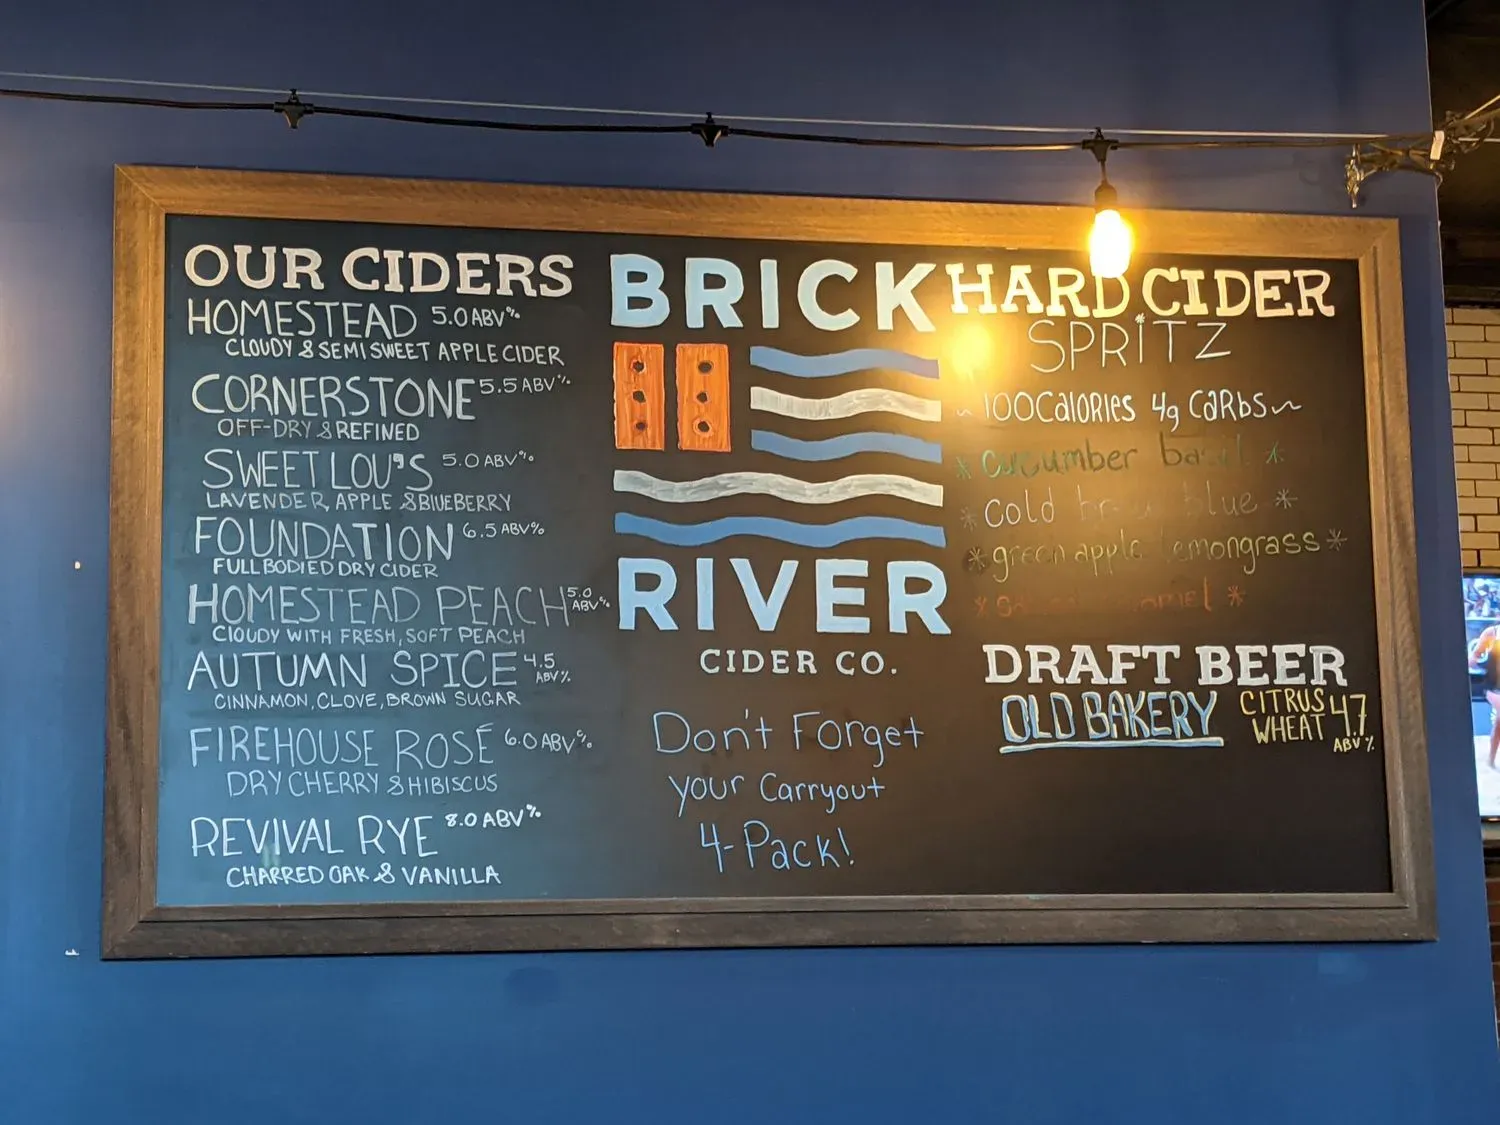 OUR CIDERS
HOMESTEAD 5.0 ABV%
CLOUDY & SEMI SWEET APPLE CIDER
CORNERSTONE 5.5 ABV%
OFF-DRY & REFINED
SWEET LOU'S 5.0 ABV%
LAVENDER, APPLE & BLUEBERRY
FOUNDATION 6.5 ABV%
FULL BODIED DRY CIDER
HOMESTEAD PEACH 5.0 ABV%
CLOUDY WITH FRESH, SOFT PEACH
AUTUMN SPICE 4.5 ABV%
CINNAMON, CLOVE, BROWN SUGAR
FIREHOUSE ROSÉ 6.0 ABV%
DRY CHERRY & HIBISCUS
REVIVAL RYE 8.0 ABV%
CHARRED OAK & VANILLA
BRICK
RIVER
CIDER CO.
Don't Forget
your Carryout
4-Pack!
HARD CIDER
SPRITZ
~100CalORIES 4g CaRbs~
* cucumber basil *
* cold brew blue *
* green apple lemongrass *
DRAFT BEER
OLD BAKERY CITRUS WHEAT 4.7 ABV%